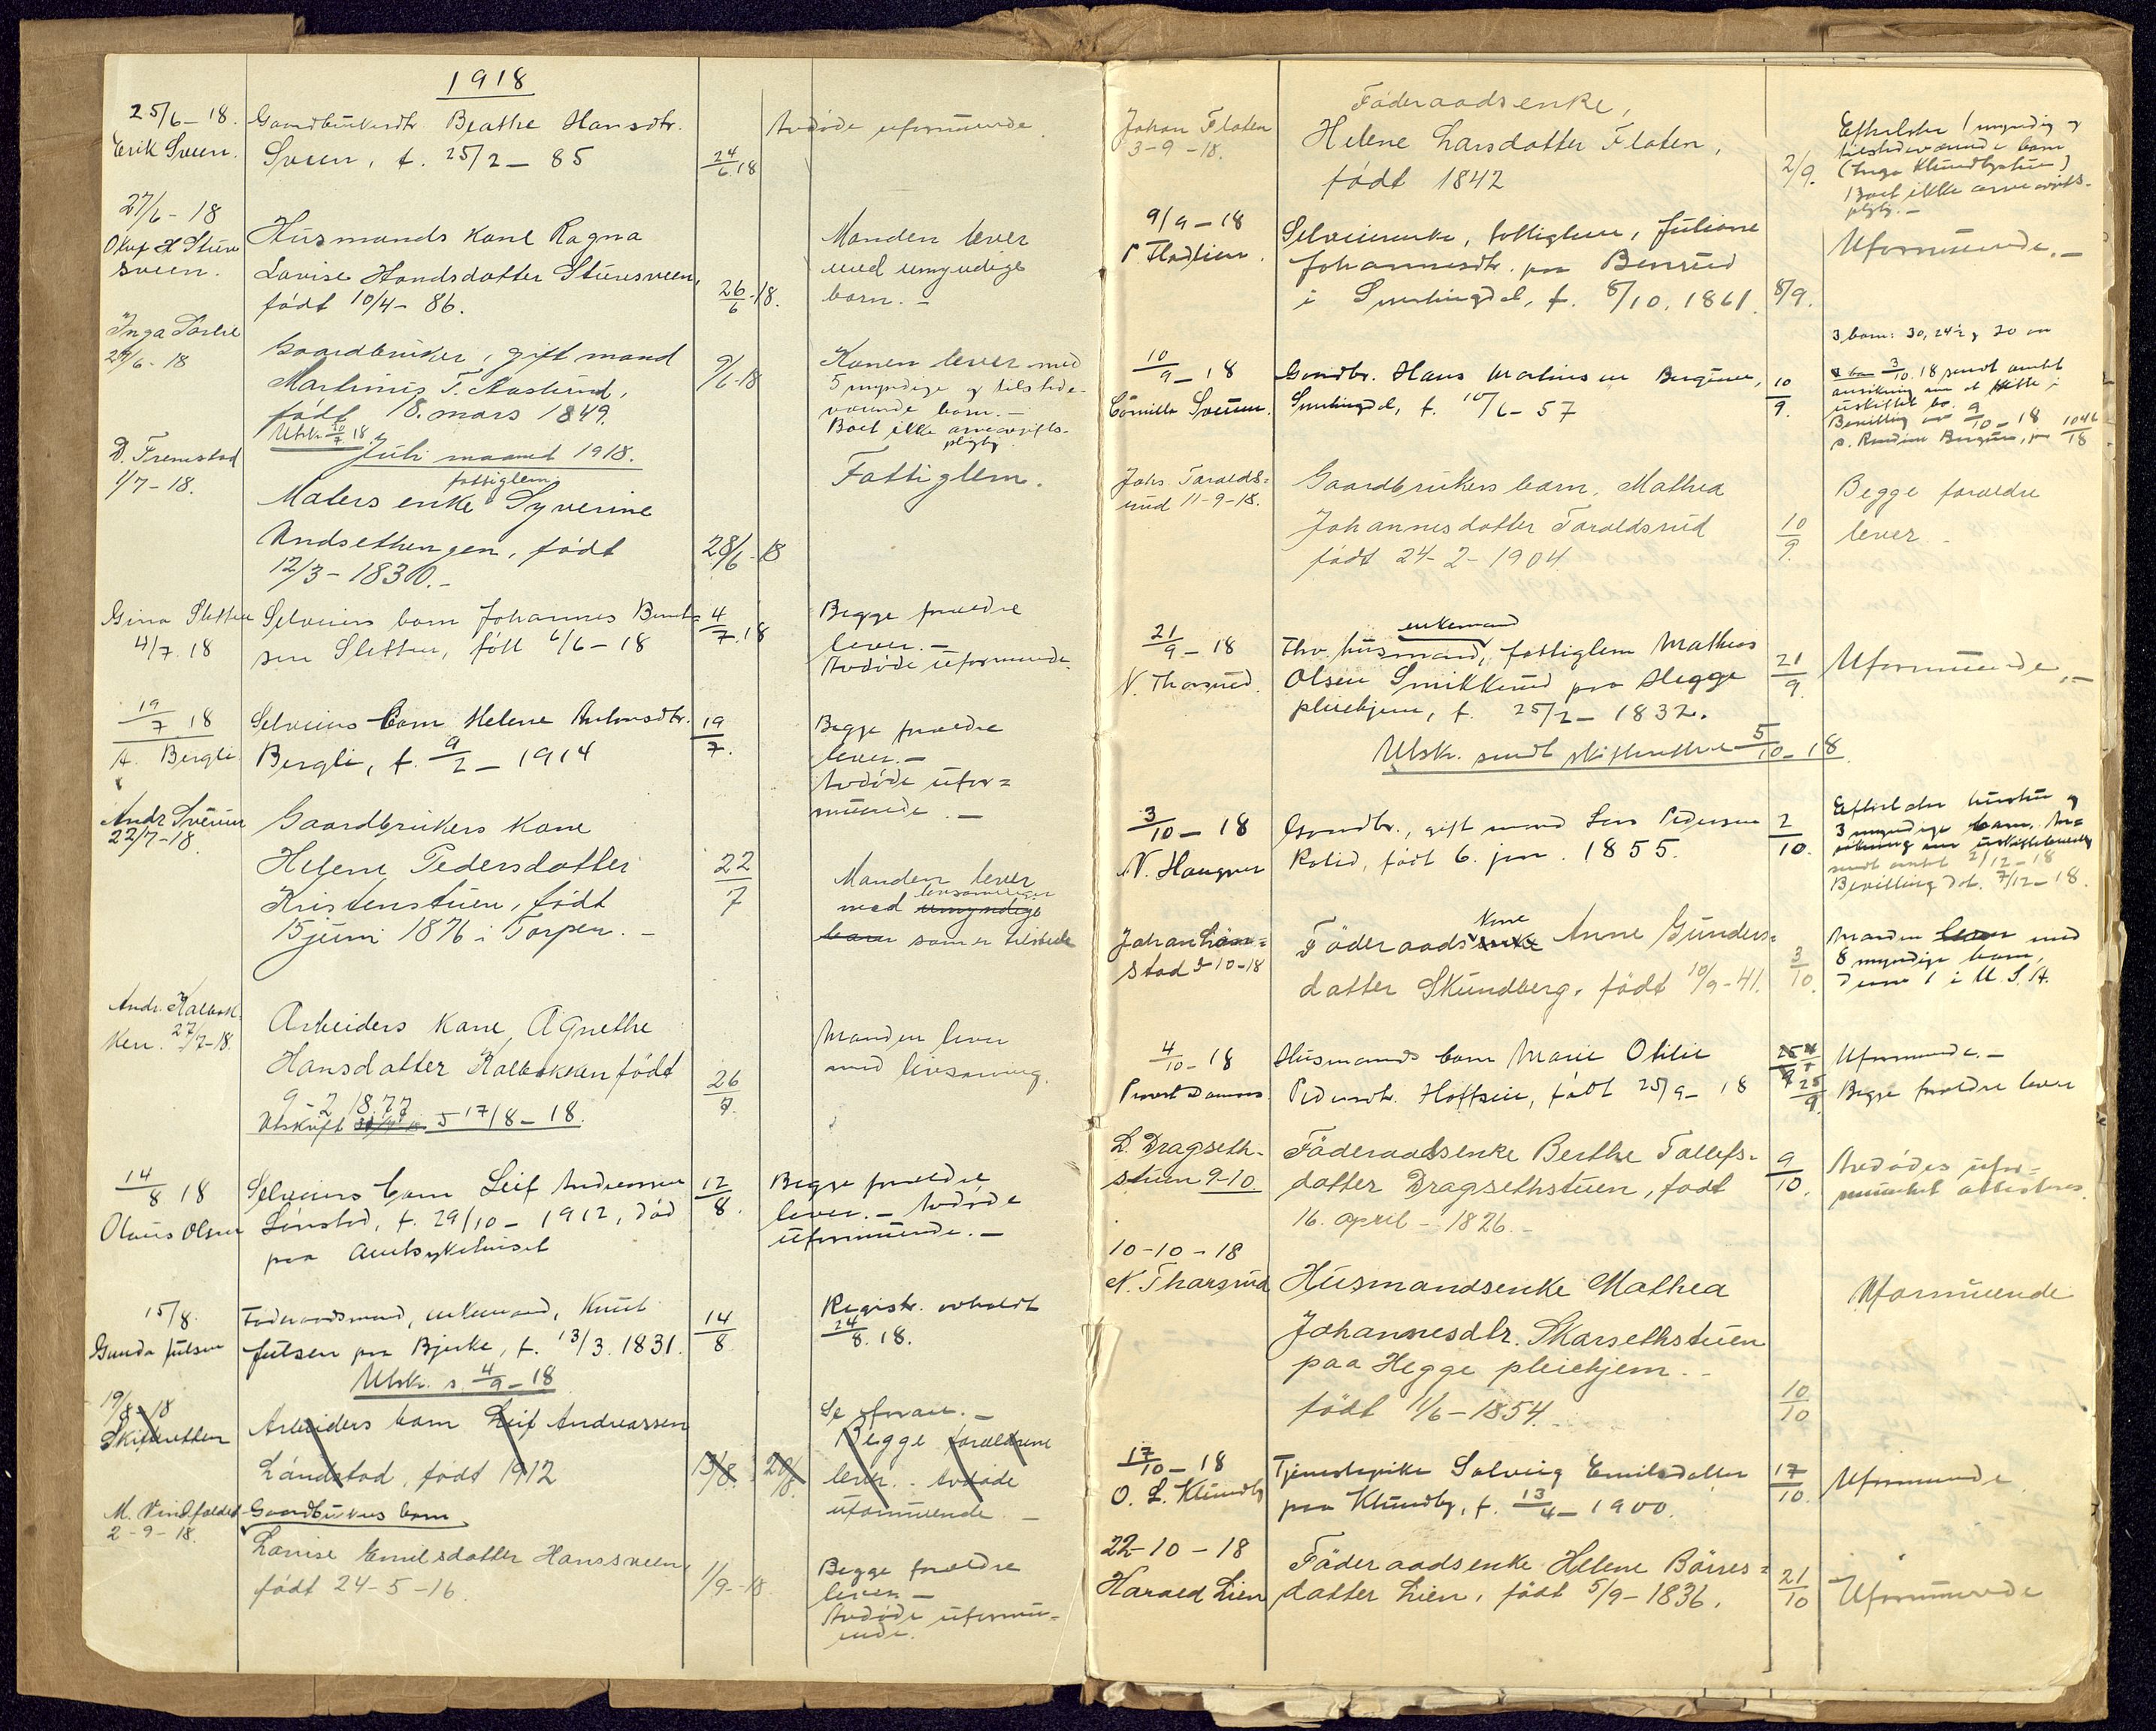 1918
25/6 - 18.
Erik Sveen.
Gaardbrukerdtr Beathe Hansdtr.
Sveen, f. 25/2 - 85
24/6 18
Avdøde uformuende.
27/6 - 18
Sveen.
Husmands kone Ragna
Lovise Handsdatter Sturesveen,
født 10/4 - 86.
26/6 - 18.
Manden lever
med umyndige
barn. -
Inga
29/6 - 18
Gaardbruker, gift mand
Martinus T. Aaslund,
født 18. mars 1849.
Utskr. 10/7 18
9/6 - 18
Konen lever med
5 myndige og tilstede-
værende barn. -
Boet ikke arveavgifts-
pligtig.
Juli maaned 1918.
D. Tremstad
1/7 - 18.
fattiglem
Malers enke Syverine
Andsethengen, født
12/3 - 1830. -
28/6 - 18
Fattiglem.
Gina Sletten
4/7 18
Selveiers barn Johannes Bernt=
sen Sletten, født 6/6 - 18
4/7. 18
Begge forældre
lever. -
Avdøde uformuende.
19/7 18
A. Bergli
Selveiers barn Helene Antonsdtr.
Bergli, f. 9/2 - 1914
19/7.
Begge forældre
lever. -
Avdøde ufor=
muende. -
Andr Sveum
22/7 - 18.
Gaardbrukers kone
Helene Pedersdatter
Kristenstuen, født
15 juni 1876 i Torpen. -
22/7
Manden lever
livsarvinger
med umyndige
barn som er tilstede
Andr. Kalbak-
ken. 27/7-18.
Arbeiders kone Agnethe
Hansdatter Kalbakken født
9 - 2 1877
Utskrift s 17/8 - 18.
26/7.
Manden lever
med livsarving.
14/8 18
Olaus Olsen
Selveiers barn Leif Andreassen
Lönstad, f. 29/10 - 1912, död
paa Amtsykehuset
12/8.
Begge forældre
lever. - Avdøde
uformuende. -
15/8.
Gunda Julsen
Føderaadsmand, enkemand, Knut
Julsen paa Bjerke, f. 13/3. 1831.
Utskr. s. 4/9 - 18
14/8
Registr. avholdt
24/8. 18.
19/8 - 18
Skifteretten
Arbeiders barn Leif Andreassen
Landstad, født 1912
13/8.
20/8.
Se foran. -
Begge forældrene
lever. - Avdøde
uformuende. -
M. Vindfaldet
2 - 9 - 18.
Gaardbrukers barn
Lovise Emilsdatter Hanssveen,
født 24 - 5 - 16.
1/9 - 18.
Begge forældre
lever. -
Avdøde uformu-
ende.
Johan Floten
3 - 9 - 18.
Föderaadsenke,
Helene Larsdatter Floten,
født 1842
2/9.
Efterlater 1 myndig og
tilstedeværende barn
(Inga Klundbystuen)
Boet ikke arveavgifts-
pligtig. -
9/9 - 18
Selveierenke, fattiglem, Juliane
Johannesdtr. paa Bensrud
i Smertingdal, f. 8/10. 1861
8/9.
Uformuende. -
10/9 - 18
Camilla Sveum.
Gaardbr. Hans Martinsen Bergum,
Snertingdal, f. 10/6 - 57
10/9.
3 barn: 30, 24½ og 20 aar
3/10. 18 sendt amtet
ansökning om at sitte i
uskiftet bo.
Bevilling av 9/10 - 18
1046/18
Johs. Taralds=
rud 11-9-18.
Gaardbrukers barn, Mathea
Johannesdatter Taraldsrud
født 24 - 2 - 1904
10/9.
Begge forældre
lever -
21/9 - 18
N. Thorsrud.
enkemand
Fhv. husmand, fattiglem Mathias
Olsen Smikkerud paa Hegge
pleiehjem, f. 25/2 - 1832.
Utskr. sendt skifteretten 5/10 - 18
21/9.
Uformuende. -
3/10 - 18
N. Haugner
Gaardbr., gift mand Lars Pedersen
Kolid, født 6. jan. 1855.
2/10.
Efterlater hustru og
3 myndige barn. An=
sökning om uskiftebevilling
sendt amtet 2/12 - 18
Bevilling dat. 7/12 - 18.
Johan Lön=
stad 3-10-18
kone
Föderaadsenke Anne Gunders=
datter Skundberg, født 10/9 - 41.
3/10.
Manden lever med
8 myndige barn,
derav 1 i U. S. A.
4/10 - 18
Husmands barn Marie Otilie
Pedersdtr. Hoffsen, født 25/9 - 18
25/9.
Uformuende. -
Begge forældre lever
L. Dragseth-
stuen 9-10.
Föderaadsenke Berthe Tollefs-
datter Dragsethstuen, født
16. april - 1826. -
9/10.
Avdødes ufor=
muenhet attesteres.
10 - 10 - 18
N. Tharsrud
Husmandsenke Mathea
Johannesdtr. Skarsethstuen
paa Hegge pleiehjem. -
født 1/6 - 1854.
10/10
Uformuende
17/10 - 18
O. L. Klundby
Tjenestepike Solveig Emilsdatter
paa Klundby, f. 13/4 - 1900.
17/10.
Uformuende
22 - 10 - 18
Harald Lien
Föderaadsenke Helene Börres=
datter Lien, født 5/9 - 1836.
21/10
Uformuende